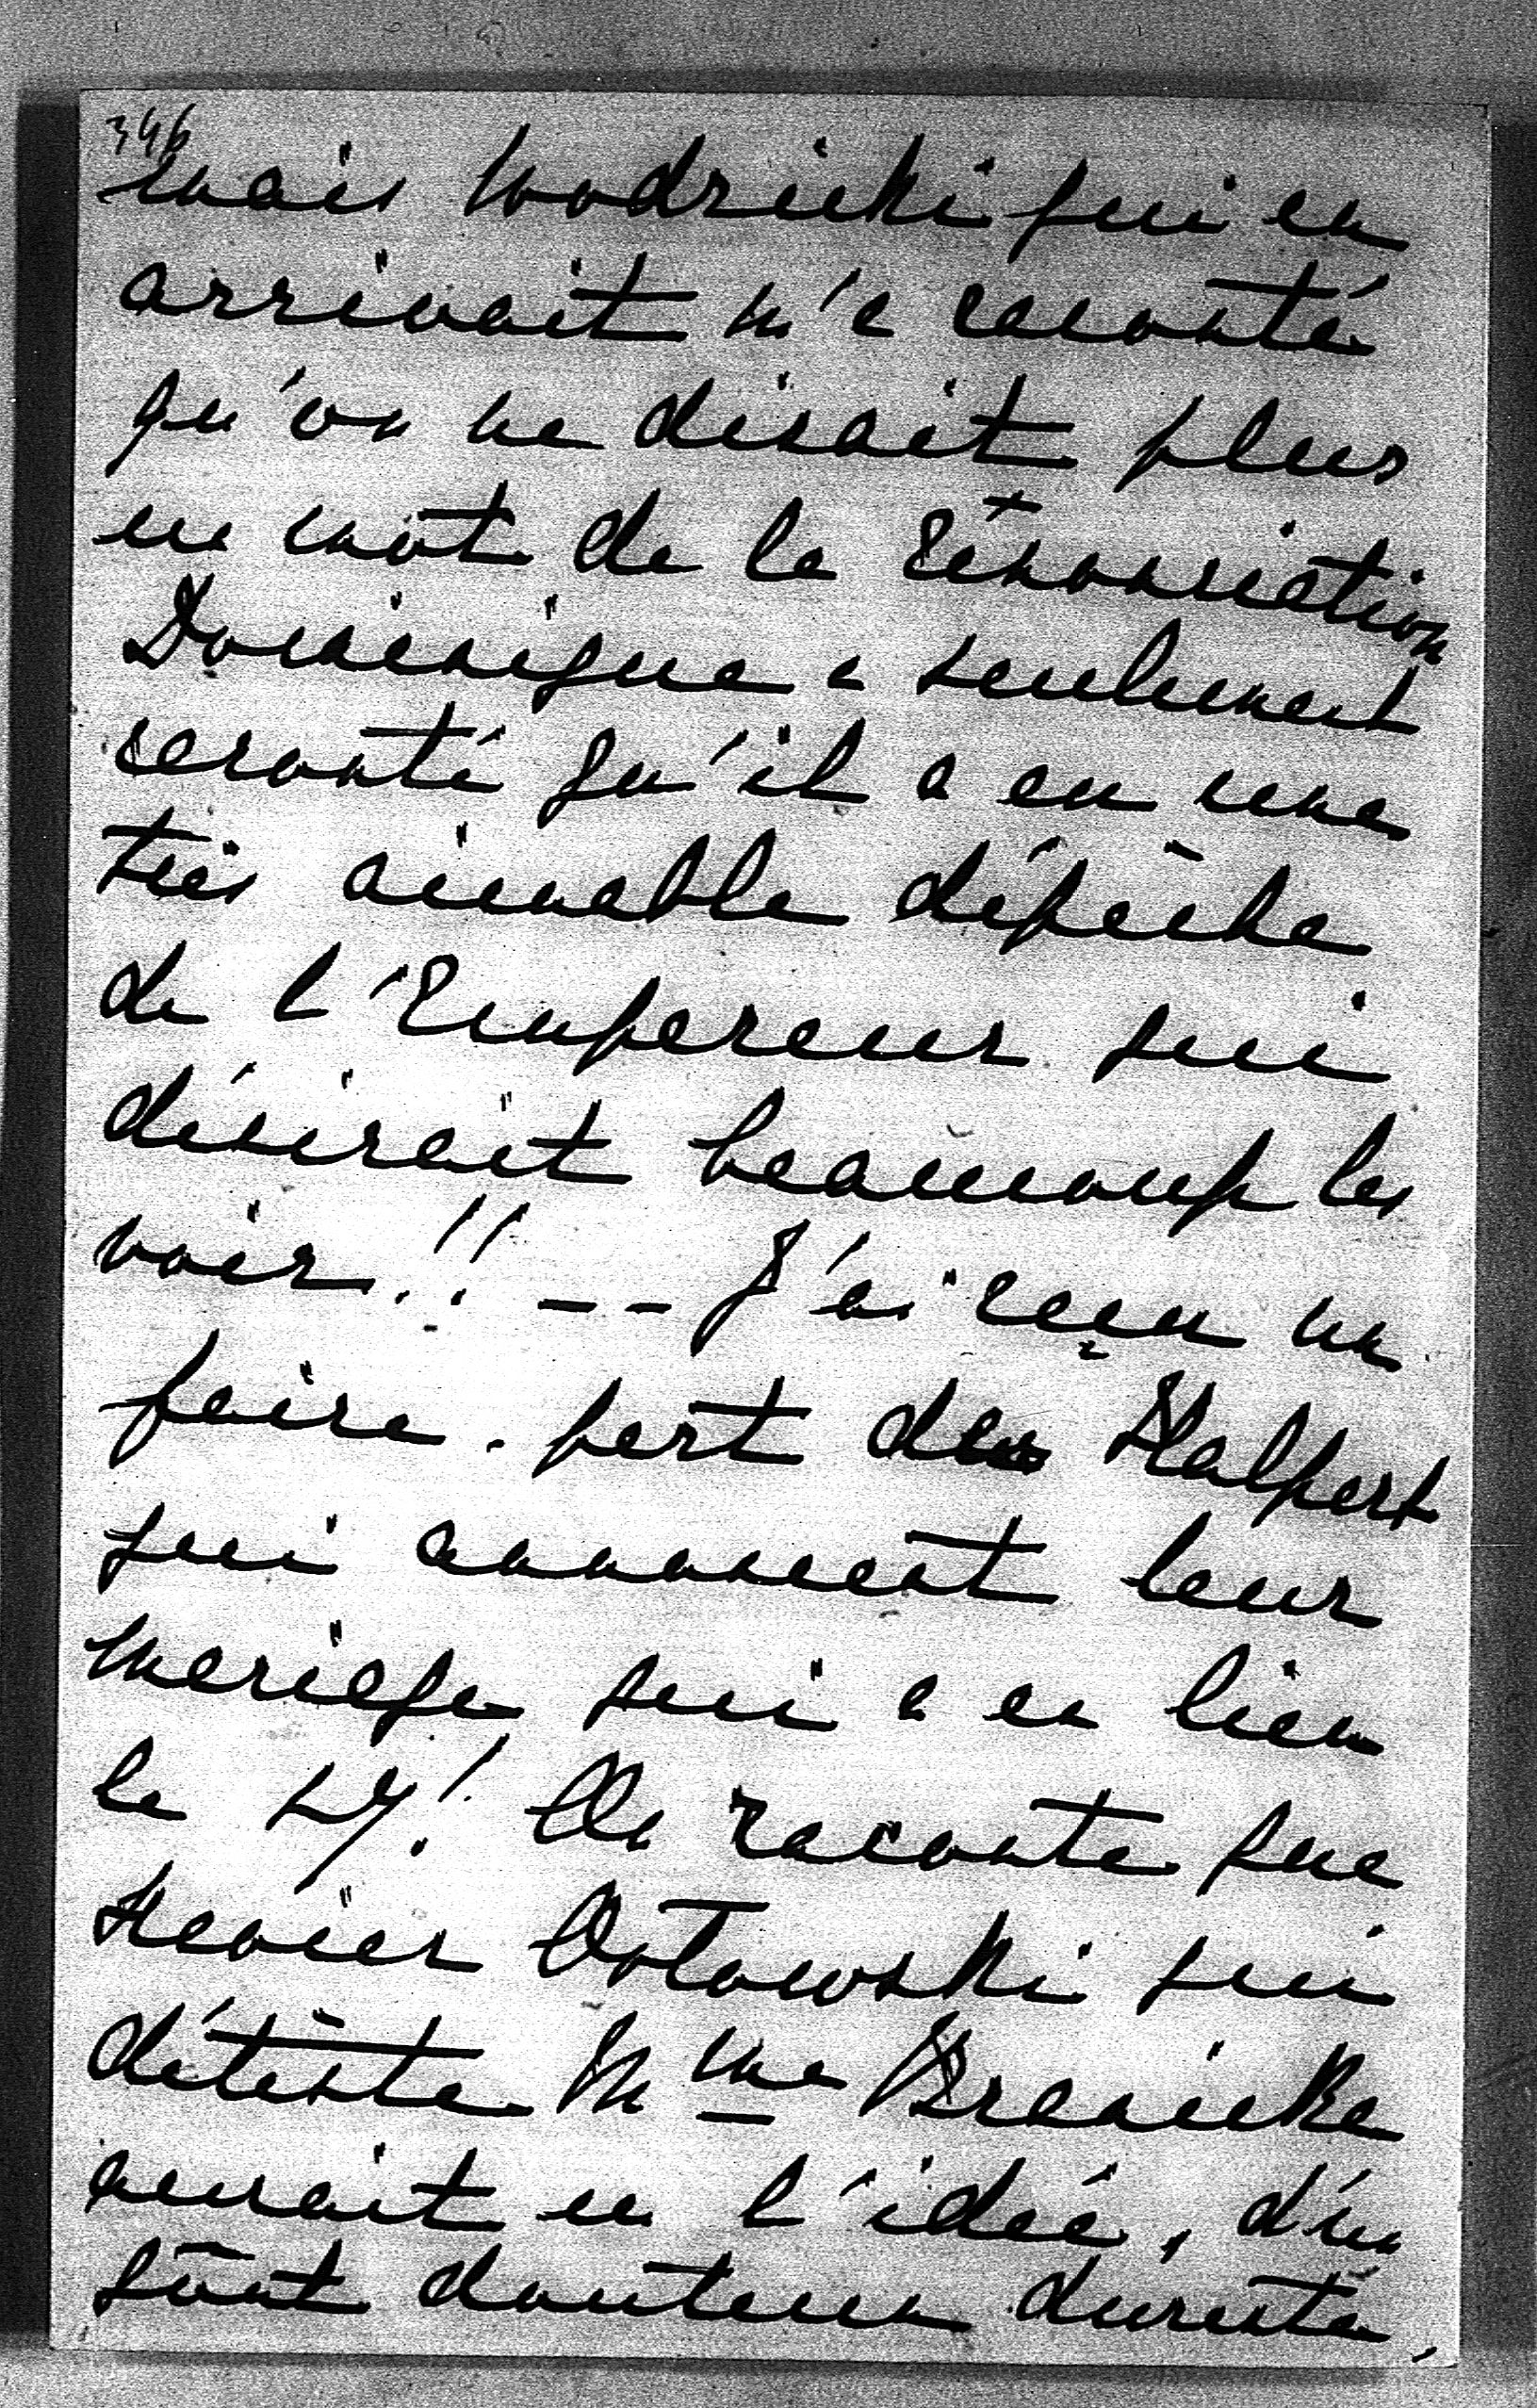 346
mais Wodzicki qui en
arrivait m'a raconté
qu'on ne disait plus
un mot de la renonciation
Dominique a seulement
raconté qu'il a eu une
très aimable dépêche
de l'Empereur qui
désirait beaucoup les
voir!! -- J'ai reçu un
faire-part des Halpert
qui annoncent leur
mariage qui a eu lieu
le 27! On raconte que
Xavier Orłowski qui
déteste Mme Branicka
aurait eu l'idée, d'un
goût douteux du reste,